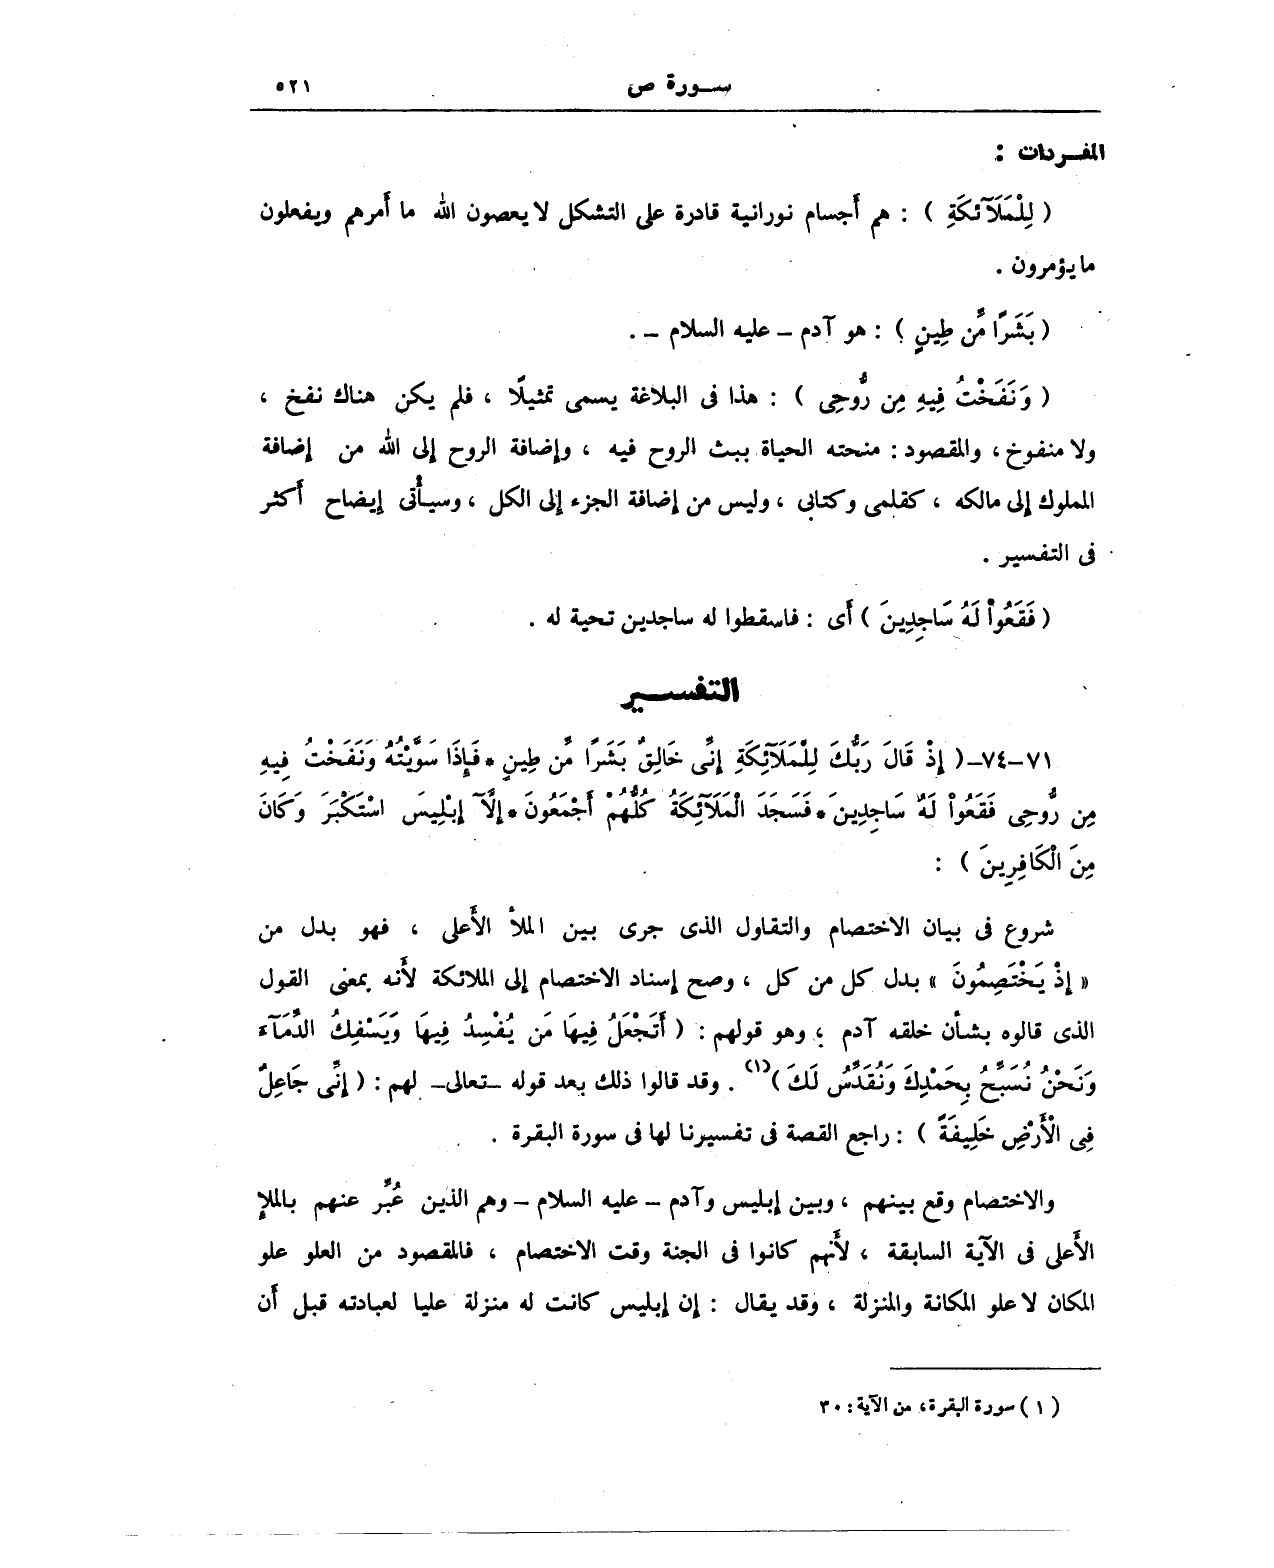 سورة ص ٥٢١
المفردات :
( لِلْمَلَآئكَةِ ) : هم أَجسام نورانية قادرة على التشكل لا يعصون الله ما أَمرهم ويفعلون
ما يؤمرون .
( بَشَرًا مِّن طِينٍ ) : هو آدم – عليه السلام – .
( وَنَفَخْتُ فِيهِ مِن رُّوحِى ) : هذا فى البلاغة يسمى تمثيلًا ، فلم يكن هناك نفخ ،
ولا منفوخ ، والمقصود : منحته الحياة ببث الروح فيه ، وإضافة الروح إلى الله من إضافة
المملوك إلى مالكه ، كقلمى وكتابى ، وليس من إضافة الجزء إلى الكل ، وسيأْتى إيضاح أَكثر
فى التفسير .
( فَقَعُواْ لَهُ سَاجِدِينَ ) أَى : فاسقطوا له ساجدين تحية له .
التفسير
٧١–٧٤–( إِذْ قَالَ رَبُّكَ لِلْمَلَآئِكَةِ إِنِّى خَالِقٌ بَشَرًا مِّن طِينٍ * فَإِذَا سَوَّيْتُهُ وَنَفَخْتُ فِيهِ
مِن رُّوحِى فَقَعُواْ لَهُ سَاجِدِينَ * فَسَجَدَ الْمَلَآئِكَةُ كُلُّهُمْ أَجْمَعُونَ * إِلَّآ إِبْلِيسَ اسْتَكْبَرَ وَكَانَ
مِنَ الْكَافِرِينَ ) :
شروع فى بيان الاختصام والتقاول الذى جرى بين الملأ الأَعلى ، فهو بدل من
« إِذْ يَخْتَصِمُونَ » بدل كل من كل ، وصح إسناد الاختصام إلى الملائكة لأَنه بمعنى القول
الذى قالوه بشأن خلقه آدم ؛ وهو قولهم : ( أَتَجْعَلُ فِيهَا مَن يُفْسِدُ فِيهَا وَيَسْفِكُ الدِّمَآءَ
وَنَحْنُ نُسَبِّحُ بِحَمْدِكَ وَنُقَدِّسُ لَكَ )(١) . وقد قالوا ذلك بعد قوله –تعالى– لهم : ( إِنِّى جَاعِلٌ
فِى الْأَرْضِ خَلِيفَةً ) : راجع القصة فى تفسيرنا لها فى سورة البقرة .
والاختصام وقع بينهم ، وبين إبليس وآدم – عليه السلام – وهم الذين عُبِّر عنهم بالملإِ
الأَعلى فى الآية السابقة ، لأَنهم كانوا فى الجنة وقت الاختصام ، فالمقصود من العلو علو
المكان لا علو المكانة والمنزلة ، وقد يقال : إن إبليس كانت له منزلة عليا لعبادته قبل أَن
( ١ ) سورة البقرة ، من الآية : ٣٠